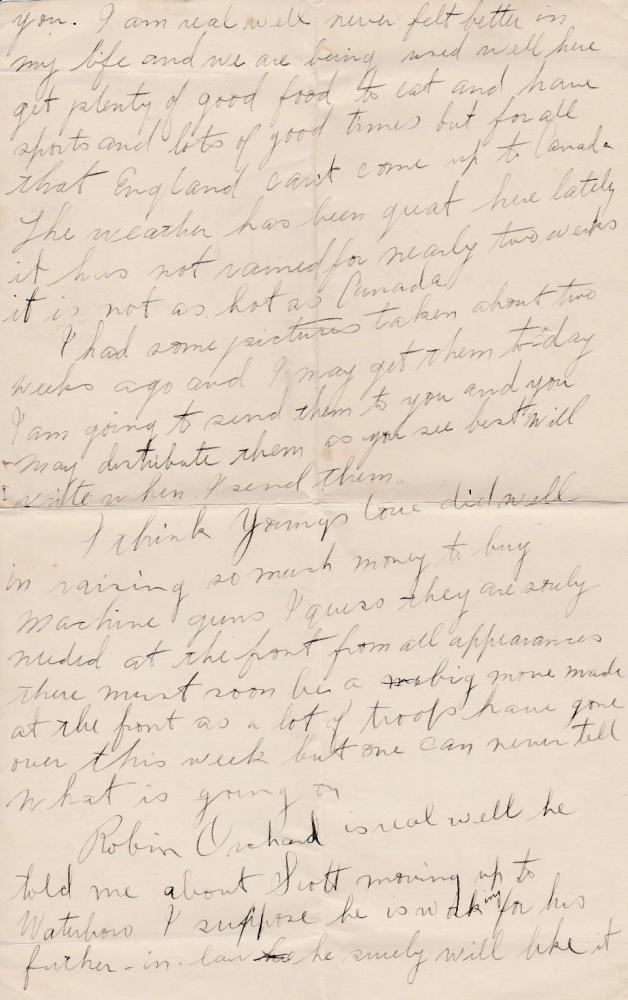 you. I am real well never felt better in
my life and we are being used well here
get plenty of good food to eat and have
sports and lots of good times but for all
that England can't come up to Canada
The weather has been great here lately
it has not rained for nearly two weeks
it is not as hot as Canada
I had some pictures taken about two
weeks ago and I may get them to-day
I am going to send them to you and you
may distribute them as you see best will
write when I send them.
I think Youngs Cove did well
in raising so much money to buy
machine guns I guess they are sorely
needed at the front from all appearances
there must soon be a big move made
at the front as a lot of troops have gone
over this week but one can never tell
what is going on
Robin Orchard is real well he
told me about Scott moving up to
Waterboro I suppose he is working for his
father-in-law he surely will like it